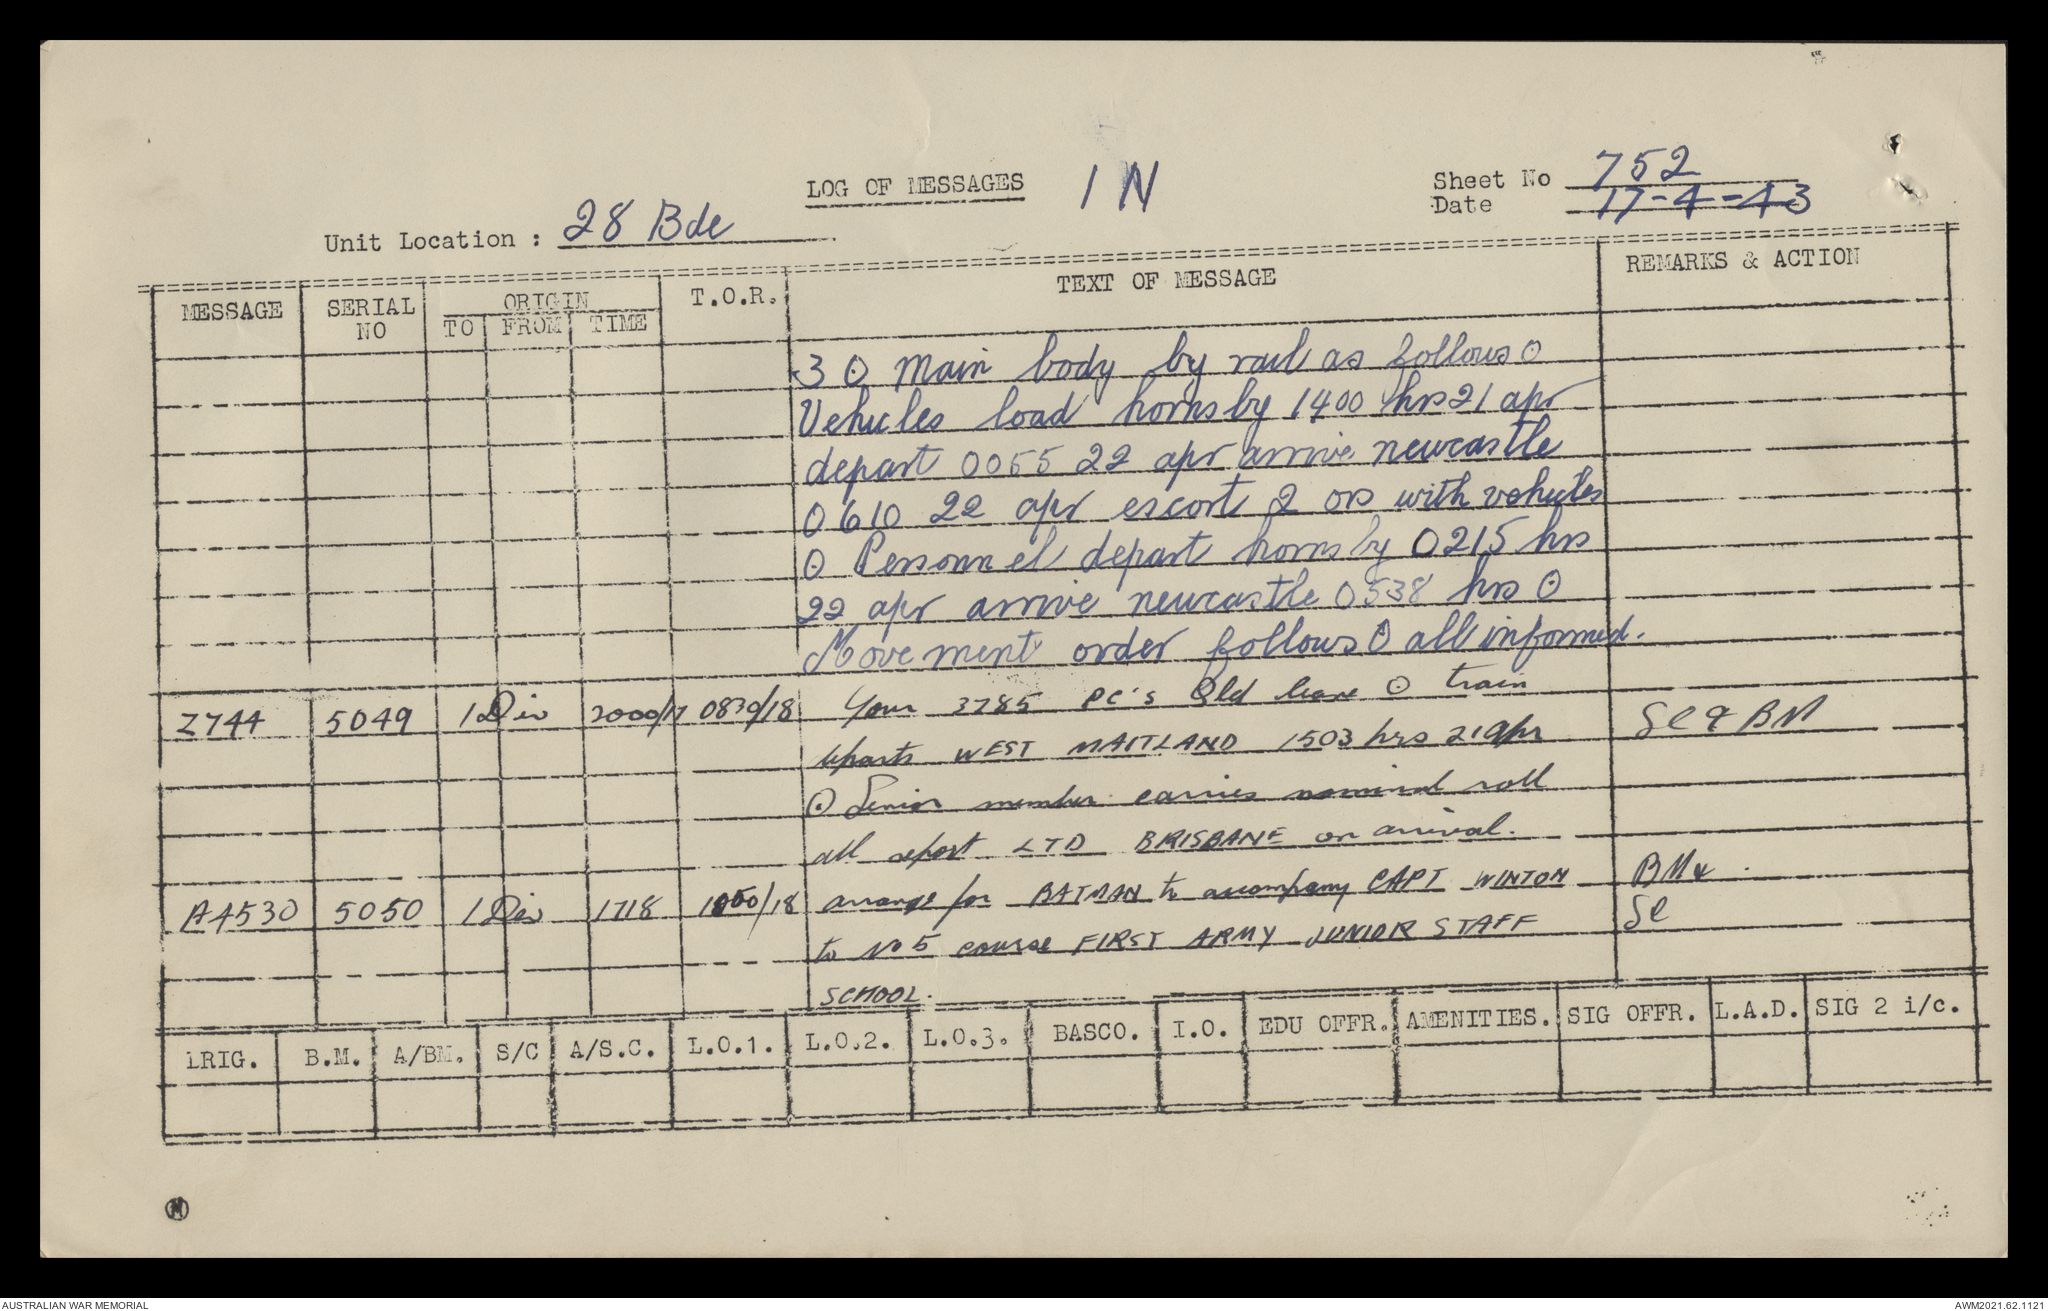 LOG OF MESSAGES IN
Sheet No 752
Date 17-4-43
Unit Location : 28 Bde
MESSAGE SERIAL NO ORIGIN TO FROM TIME T.O.R. TEXT OF MESSAGE REMARKS & ACTION
3 ⊙ Main body by rail as follows ⊙
Vehicles load hornsby 1400 hrs 21 apr
depart 0055 22 apr arrive newcastle
0610 22 apr escort 2 ors with vehicles
⊙ Personnel depart hornsby 0215 hrs
22 apr arrive newcastle 0538 hrs ⊙
Movement order follows ⊙ all informed.
Z744 5049 1 Div 2000/17 0830/18 Your 3785 PC's Qld leave ⊙ train
departs WEST MAITLAND 1503 hrs 21 apr SC & BM
⊙ Senior member carries nominal roll
all report LTD BRISBANE on arrival.
A4530 5050 1 Div 1718 /18 arrange for BATMAN to accompany CAPT WINTON BM &
to No 5 course FIRST ARMY JUNIOR STAFF SC
SCHOOL.
LRIG. B.M. A/BM. S/C A/S.C. L.O.1. L.O.2. L.O.3. BASCO. I.O. EDU OFFR. AMENITIES. SIG OFFR. L.A.D. SIG 2 i/c.
M
AUSTRALIAN WAR MEMORIAL AWM2021.62.1121